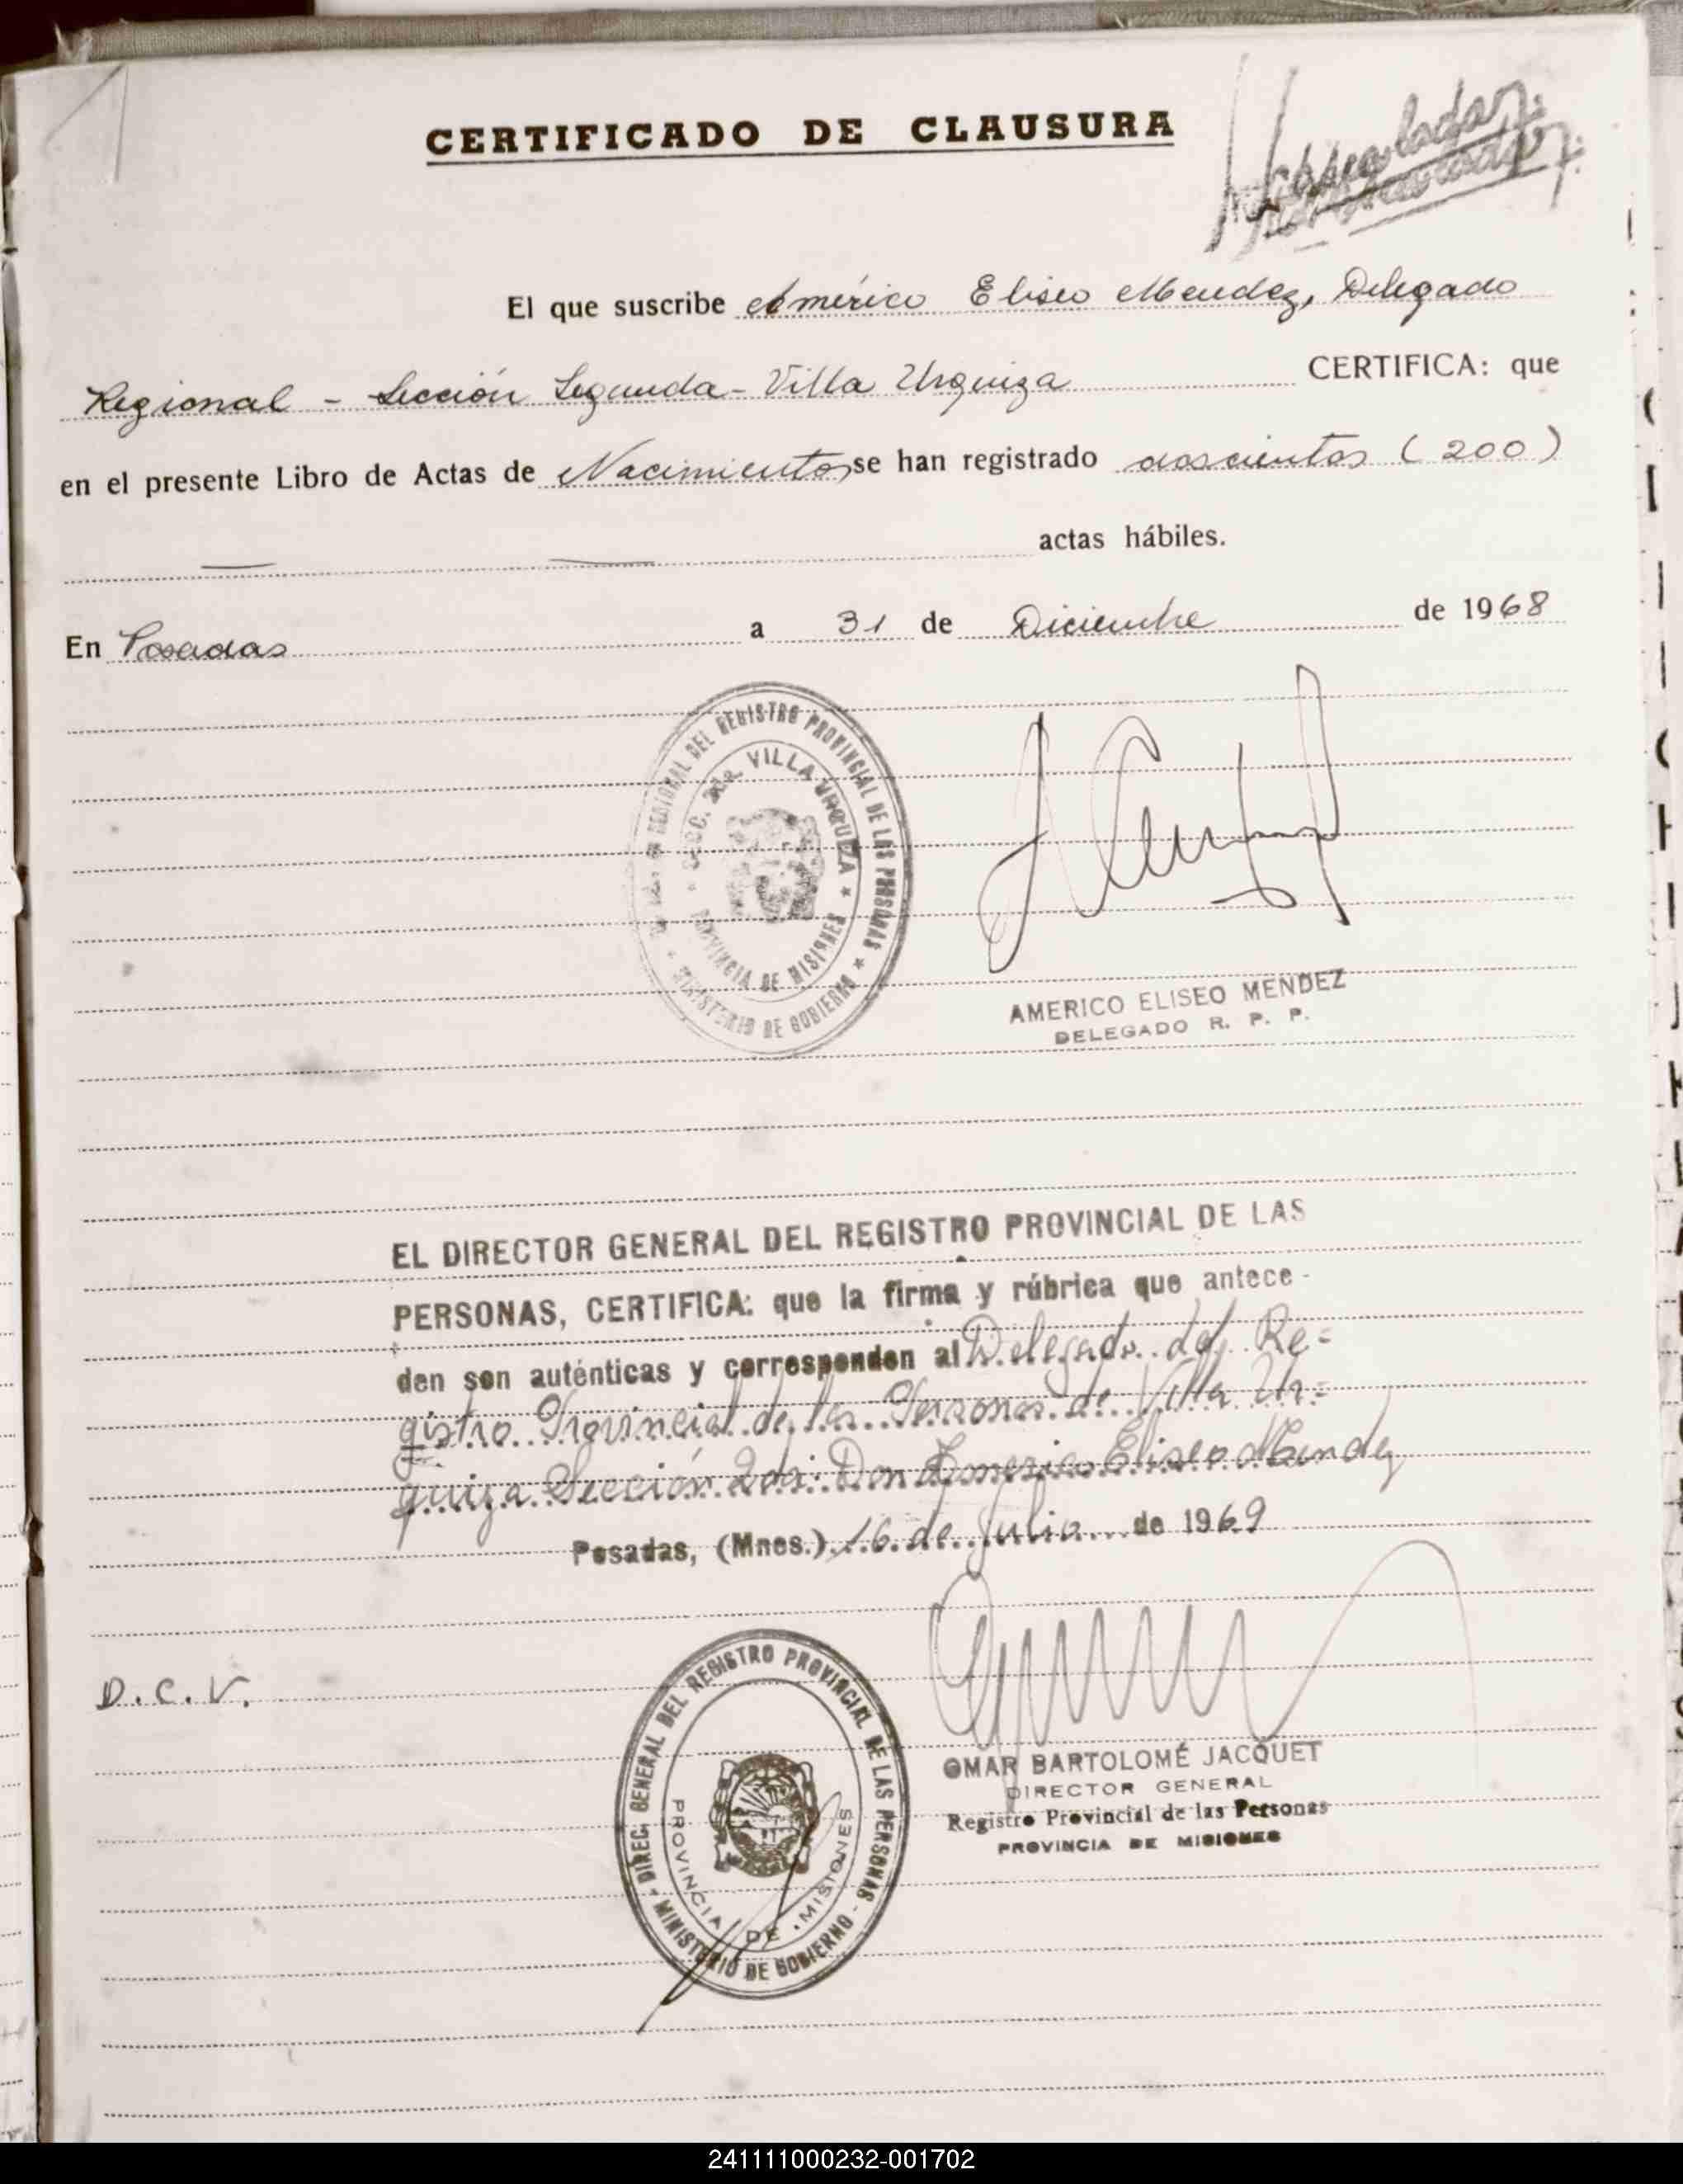 CERTIFICADO DE CLAUSURA
El que suscribe Américo Eliseo Mendez, Delegado
Regional - Sección Segunda - Villa Urquiza CERTIFICA: que
en el presente Libro de Actas de Nacimientos se han registrado doscientos (200)
actas hábiles.
En Posadas a 31 de Diciembre de 1968
REGIONAL DEL REGISTRO PROVINCIAL DE LAS PERSONAS
SECC. 2DA. VILLA URQUIZA
PROVINCIA DE MISIONES
MINISTERIO DE GOBIERNO
AMERICO ELISEO MENDEZ
DELEGADO R. P. P.
EL DIRECTOR GENERAL DEL REGISTRO PROVINCIAL DE LAS
PERSONAS, CERTIFICA: que la firma y rúbrica que antece-
den son auténticas y corresponden al Delegado del Re=
gistro Provincial de las Personas de Villa Ur=
quiza Sección 2da: Don Americo Eliseo Mendez
Posadas, (Mnes.) 16 de Julio de 1969
D.C.V.
DIREC. GENERAL DEL REGISTRO PROVINCIAL DE LAS PERSONAS
PROVINCIA DE MISIONES
MINISTERIO DE GOBIERNO
OMAR BARTOLOMÉ JACQUET
DIRECTOR GENERAL
Registro Provincial de las Personas
PROVINCIA DE MISIONES
241111000232-001702